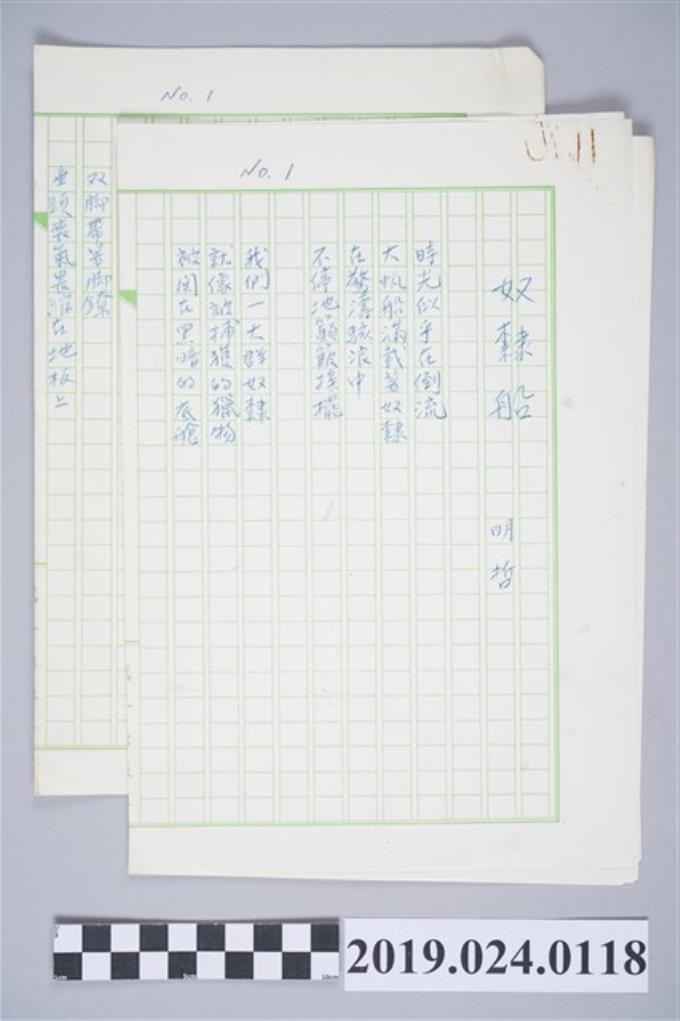 No. 1
奴隸船
明哲
時光似乎在倒流
大帆船滿載著奴隸
在驚濤駭浪中
不停地顛簸搖擺
我們一大群奴隸
就像被捕獲的獵物
被関在黑暗的底艙
No. 1
双脚帶著脚鐐
垂頭喪氣畏縮在地板上
0cm
5cm
10cm
2019.024.0118